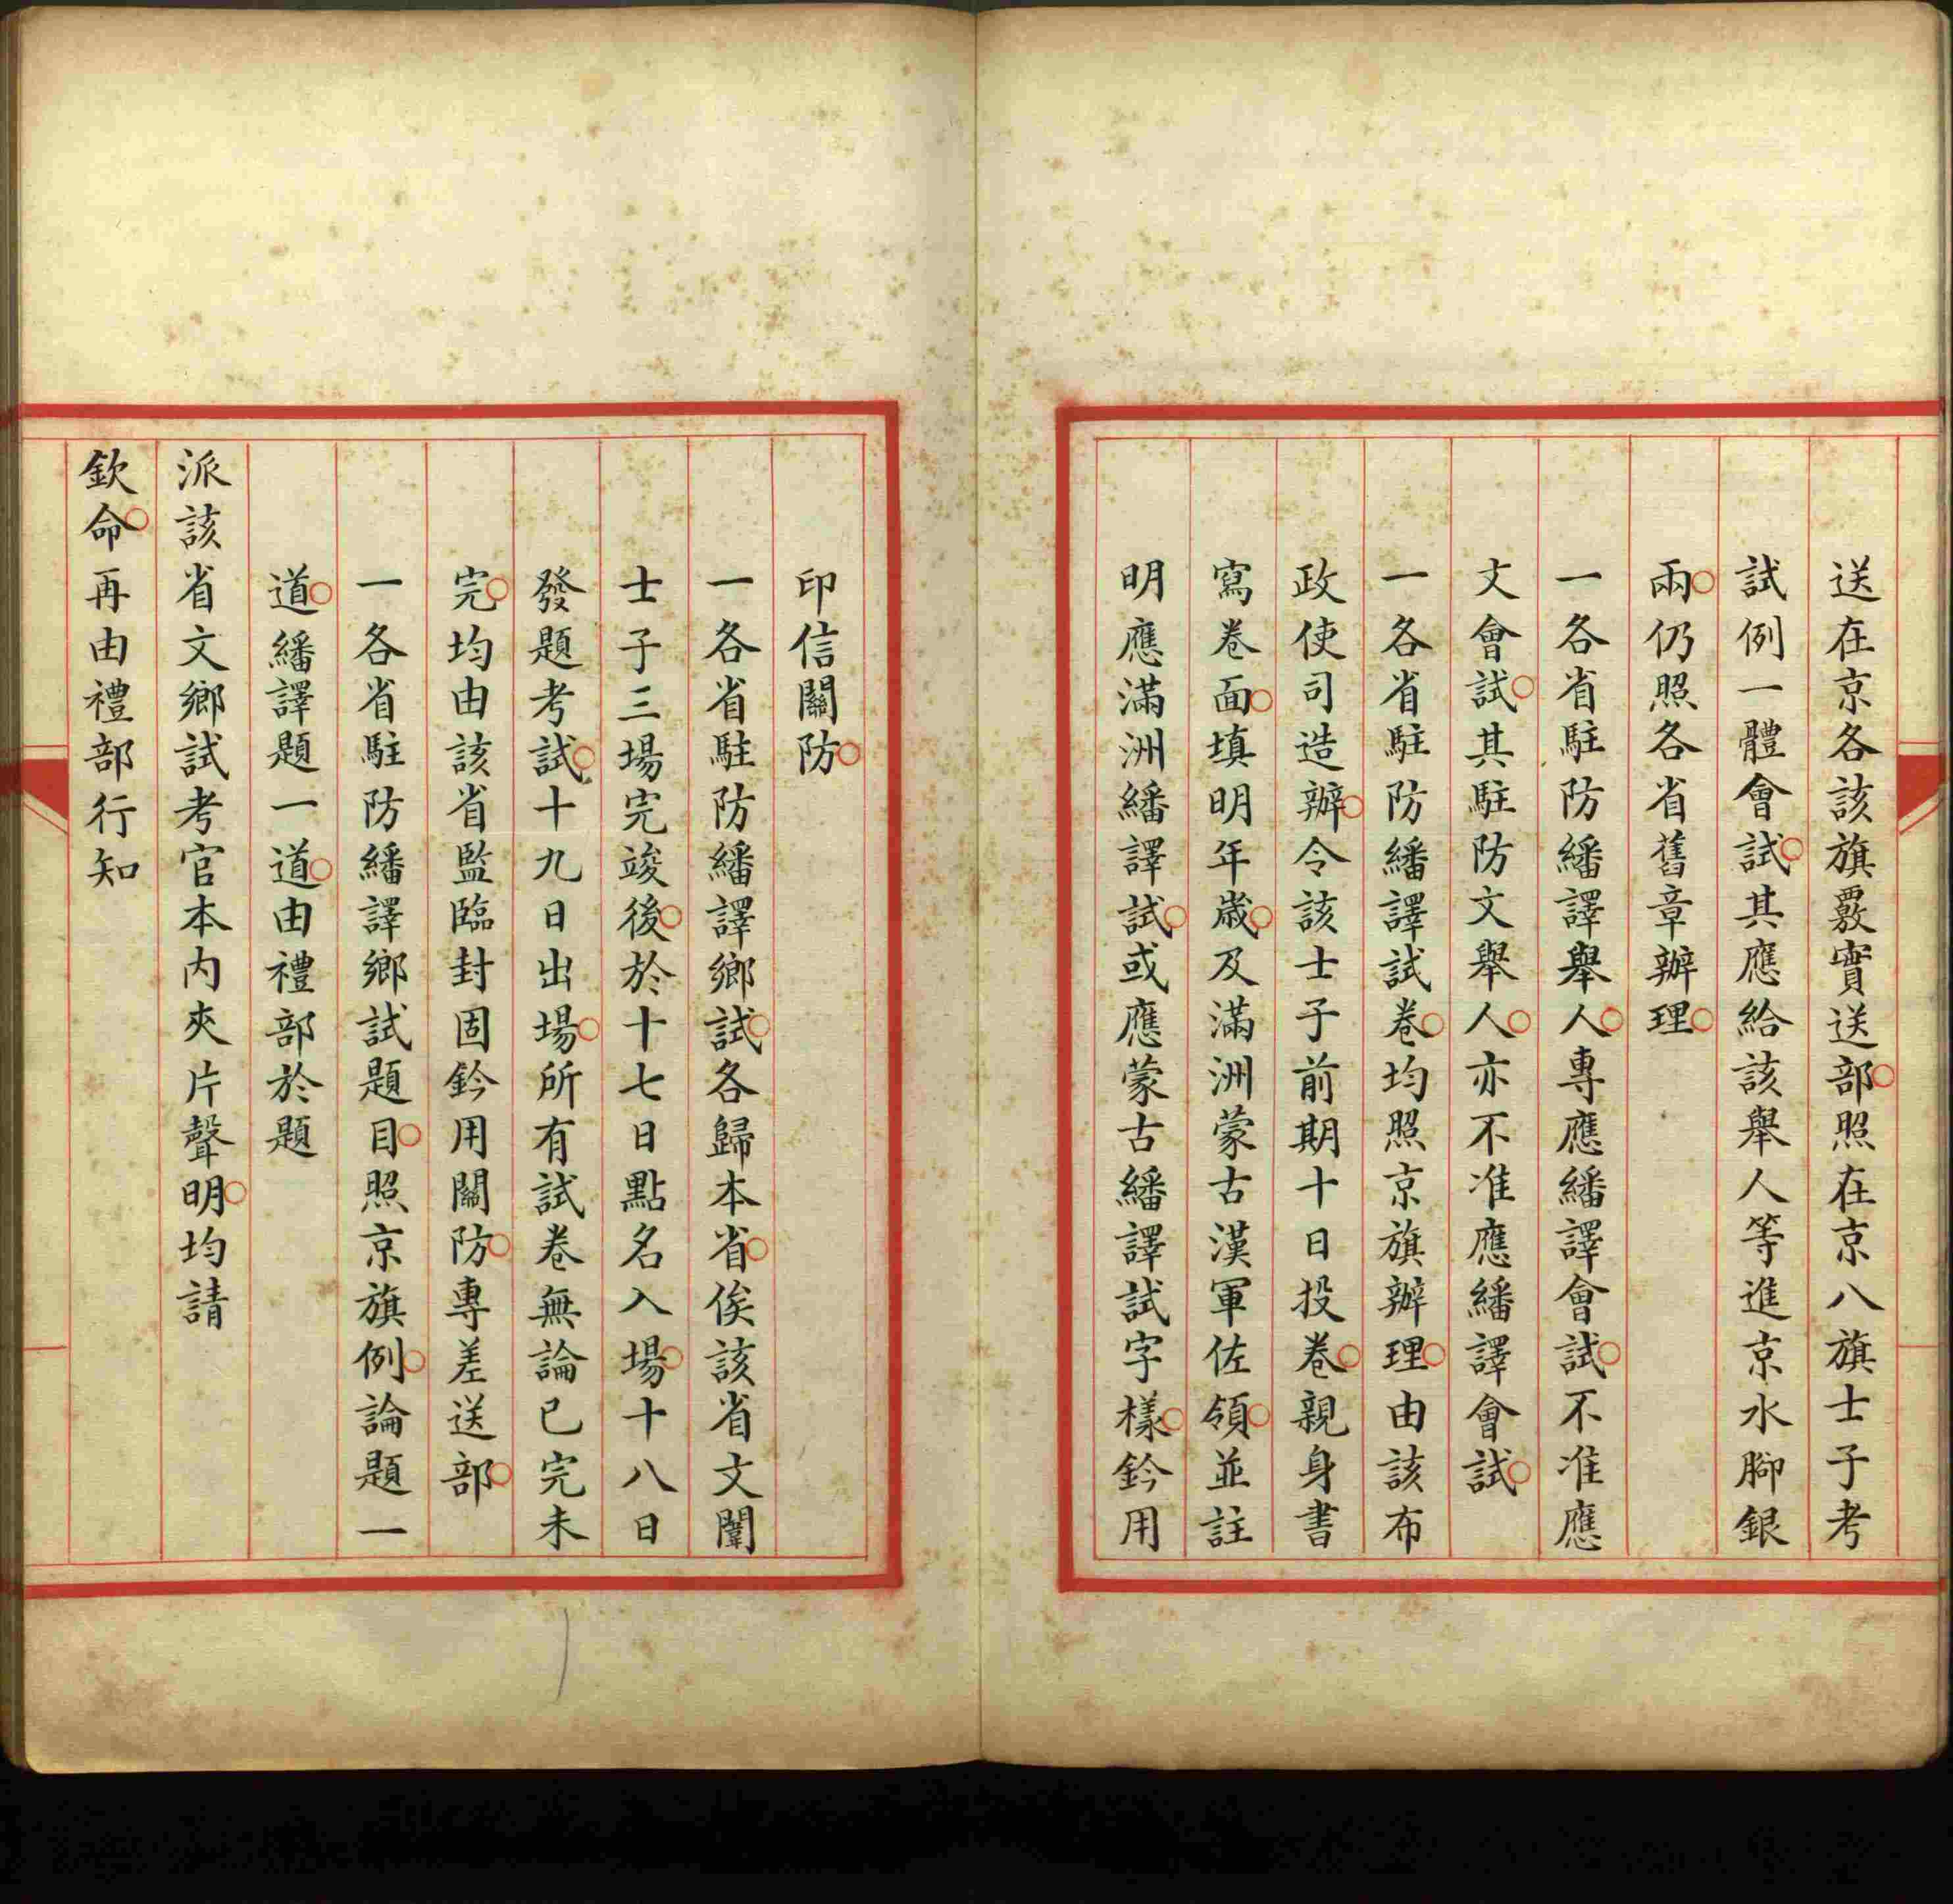 送在京各該旗覈實送部照在京八旗士子考
試例一體會試其應給該舉人等進京水腳銀
兩仍照各省舊章辦理
一各省駐防繙譯舉人專應繙譯會試不准應
文會試其駐防文舉人亦不准應繙譯會試
一各省駐防繙譯試卷均照京旗辦理由該布
政使司造辦令該士子前期十日投卷親身書
寫卷面填明年歲及滿洲蒙古漢軍佐領並註
明應滿洲繙譯試或應蒙古繙譯試字樣鈐用
印信關防
一各省駐防繙譯鄉試各歸本省俟該省文闈
士子三場完竣後於十七日點名入場十八日
發題考試十九日出場所有試卷無論已完未
完均由該省監臨封固鈐用關防專差送部
一各省駐防繙譯鄉試題目照京旗例論題一
道繙譯題一道由禮部於題
派該省文鄉試考官本內夾片聲明均請
欽命再由禮部行知